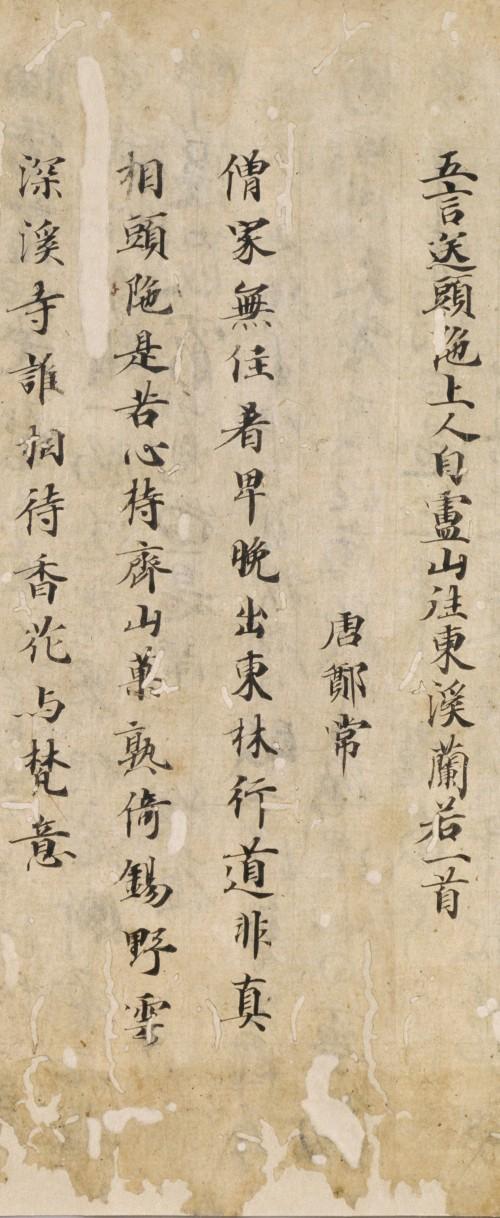 五言送頭陁上人自廬山往東溪蘭若一首
唐鄭常
僧家無住着早晚出東林行道非真
相頭陁是苦心持齋山菓熟倚錫野雲
深溪寺誰相待香花与梵音